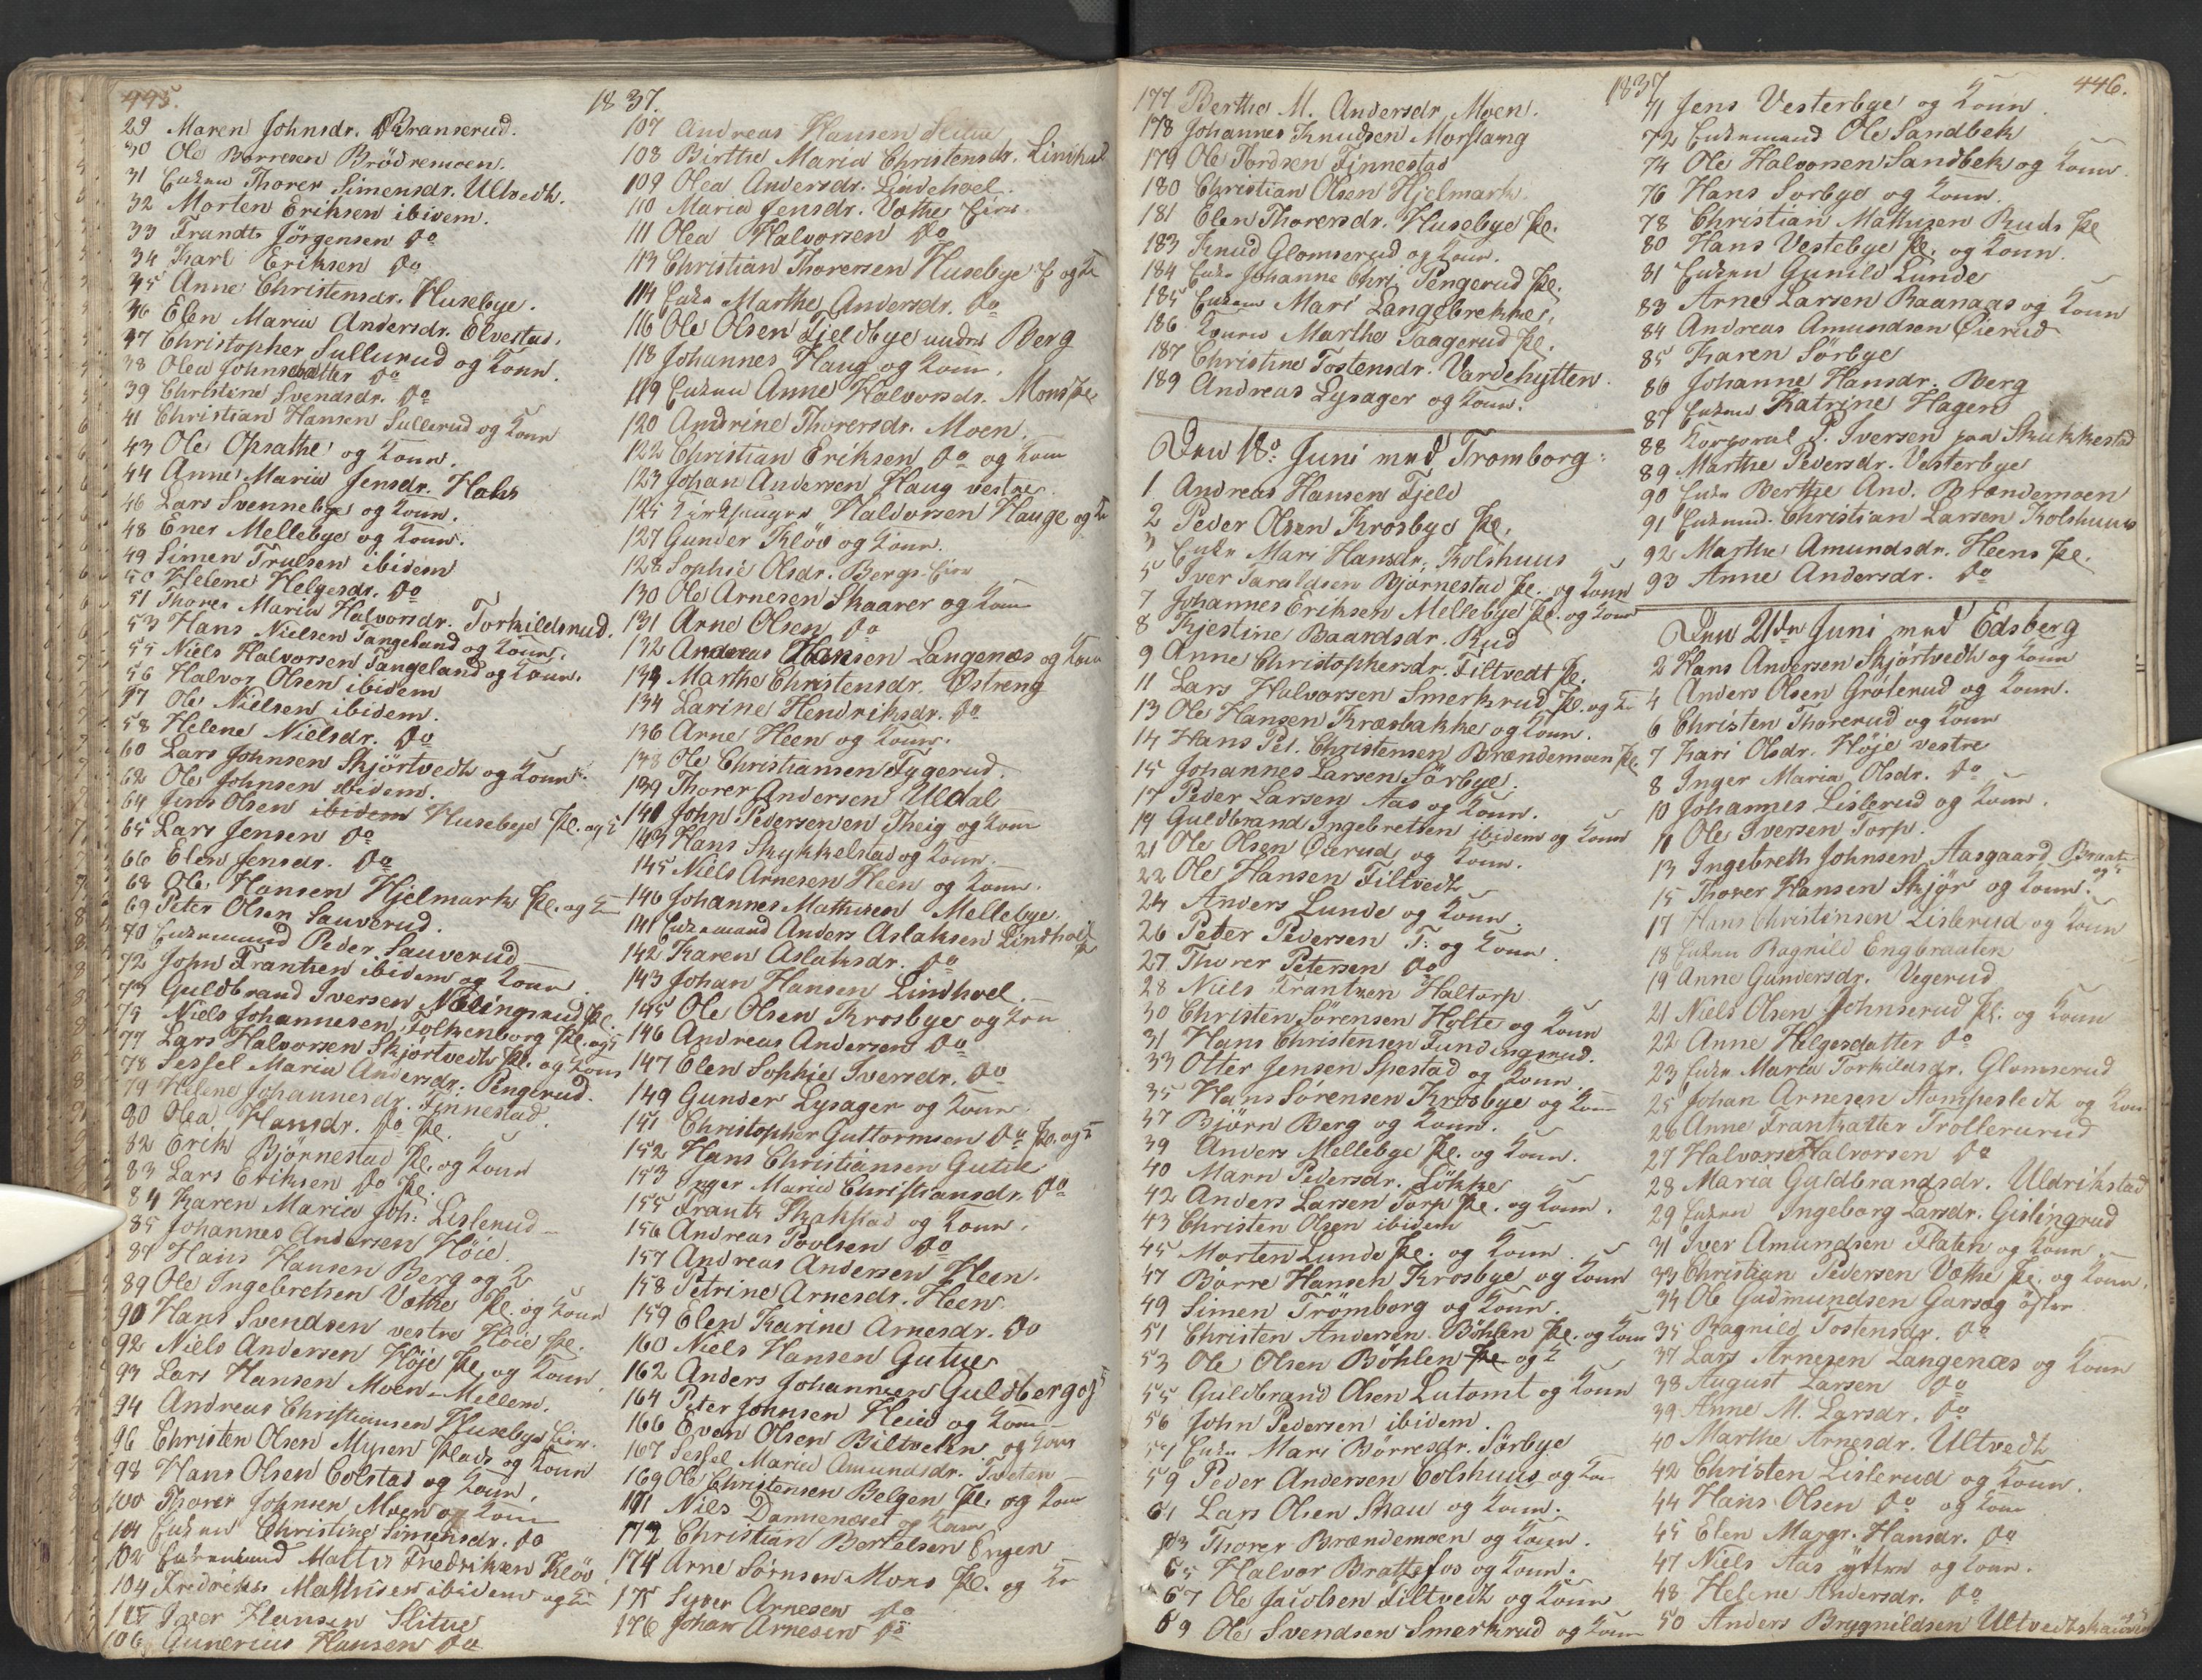 445.
1837.
29 Maren Johnsdr. Branserud.
30 Ole Borresen Brödremoen.
31 Enken Thorer Simensdr. Ultvedt.
32 Morten Eriksen ibidem.
33 Frandts Jörgensen do
34 Karl Eriksen do
35 Anne Christensdr. Husebye.
36 Elen Maria Andersdr. Elvestad.
37 Christopher Sullerud og Kone.
38 Olea Johnsdatter do
39 Christine Svendsdr. do
41 Christian Hansen Sullerud og Kone
43 Ole Opsathe og Kone.
44 Anne Maria Jensdr. Hahs
46 Lars Svennebye og Kone.
48 Ener Mellebye og Kone.
49 Simen Trulsen ibidem
50 Helene Helgesdr. do
51 Thorer Maria Halvorsdr. Torkildsrud.
53 Hans Nielsen Tangeland og Kone.
55 Niels Halvorsen Tangeland og Kone.
56 Halvor Olsen ibidem
57 Ole Nielsen ibidem.
58 Helene Nielsdr. do
60 Lars Johnsen Skjörtvedt og Kone.
62 Ole Johnsen ibidem.
64 Jens Olsen ibidem Husebye Pl. og K
65 Lars Jensen do
66 Elen Jensdr. do
68 Ole Hansen Hjelmark Pl. og K
69 Peter Olsen Sauverud.
70 Enkemand Peder Sauverud
72 John Frantzen ibidem og Kone
73 Guldbrand Iversen Nölingsrud Pl.
75 Niels Johannesen Folkenborg Pl. og K
77 Lars Halvorsen Skjörtvedt Pl. og Kone
78 Sessel Maria Andersdr. Pengerud.
79 Helene Johannesdr. Finnestad.
80 Olea Hansdr. do Pl.
82 Erik Björnestad Pl. og Kone
83 Lars Eriksen do Pl.
84 Karen Maria Joh: Lislerud
85 Johannes Andersen Höie.
87 Hans Hansen Berg og K
89 Ole Ingebretsen Vathe Pl. og Kone
90 Hans Svendsen vestre Höie Pl.
92 Niels Andersen Höje Pl. og Kone
93 Lars Hansen Moen Mellem.
94 Andreas Christiansen Husebye Eier.
96 Christen Olsen Myren Plads og Kone
98 Hans Olsen Colstad og Kone.
100 Thorer Johnsen Moen og Kone
101 Enken Christine Simensdr. do
102 Enkemand Mathis Fredriksen Kløv
104 Fredriks Mathisen ibidem og K
105 Iver Hansen Slitue
106 Gunerius Hansen do
107 Andreas Hansen Slitue
108 Birthe Maria Christensdr. Lindhol
109 Olea Andersdr. Lindehoel.
110 Maria Jensdr. Vathe Eier.
111 Olea Halvorsen do
113 Christian Thorersen Husebye E og K
114 Enke Marthe Andersdr. do
116 Ole Olsen Fjeldbye under Berg
118 Johannes Haug og Kone.
119 Enken Anne Halvorsdr. Mons Pl.
120 Andrine Thorersdr. Moen.
122 Christian Eriksen do og Kone
123 Johan Andersen Haug vestre.
125 Kirkesanger Haldorsen Hauge og K
127 Gunder Kløv og Kone.
128 Sophie Olsdr. Bergs Eier
130 Ole Arnesen Skaarer og Kone
131 Arne Olsen do
132 Andreas Hansen Langenæs og Kone
133 Marthe Christensdr. Østreng
134 Larine Hendriksdr. do
136 Arne Heen og Kone.
138 Ole Christiansen Tygerud.
139 Thorer Andersen Uldal
141 John Pedersen en Theig og Kone
143 Hans Skykkelstad og Kone.
145 Niels Arnesen Heen og Kone.
146 Johannes Mathisen Mellebye.
141 Enkemand Anders Aslaksen Lindhol Pl
142 Karen Aslaksdr. do
143 Johan Hansen Lindhoel.
145 Ole Olsen Krosbye og Kone
146 Andreas Andersen do
147 Elen Sophie Iversdr. do
149 Gunder Lysager og Kone.
151 Christopher Guttormsen do Pl. og K
152 Hans Christiansen Gutue
153 Inger Maria Christiansdr. do
155 Frants Skakstad og Kone.
156 Andreas Povlsen do
157 Andreas Andersen Heen.
158 Petrine Arnesdr. Heen
159 Elen Karine Arnesdr. do
160 Niels Hansen Gutue
162 Anders Johannesen Guldberg og K
164 Peter Johnsen Heie og Kone
166 Even Olsen Biltvedt og Kone
167 Sessel Maria Amundsdr. Tveten
169 Ole Christensen Belgen Pl. og Kone
171 Niels Dannenaset og Kone
172 Christian Bertelsen Engen
174 Arne Sørnsen Mons Pl. og K
175 Syver Arnesen do
176 Johan Arnesen do
1837
446.
177 Berthe M. Andersdr. Moen.
178 Johannes Knudsen Morstang
179 Ole Thordsen Finnestad
180 Christian Olsen Hjelmark.
181 Elen Thorersdr. Husebye Pl.
183 Knud Glomserud og Kone.
184 Enke Johanne Chri. Pengerud Pl.
185 Enken Mari Langebrekke,
186 Konen Marthe Taagerud Pl.
187 Christine Tostensdr. Vardehytten.
189 Andreas Lysager og Kone.
Den 18de Juni med Tromborg:
1 Andreas Hansen Fjeld
2 Peder Olsen Krosbye Pl.
3 Enke Mari Hansdr. Kolshuus
5 Iver Taraldsen Bjørnestad Pl. og Kone
7 Johannes Eriksen Mellebye Pl. og Kone
8 Kjestine Baardsdr. Rud
9 Anne Christophersdr. Filtvedt Pl.
11 Lars Halvorsen Smerkrud Pl. og K
13 Ole Hansen Kræsbakke og Kone.
14 Hans Pet. Christensen Brændemoen Pl.
15 Johannes Larsen Sörbye.
17 Peder Larsen Aas og Kone.
19 Guldbrand Ingebretsen ibidem og Kone
21 Ole Olsen Oarud og Kone.
22 Ole Hansen Filtvedt
24 Anders Lunde og Kone.
26 Peter Pedersen F: og Kone.
27 Thorer Petersen do
28 Niels Frantzen Haltorp
30 Christen Sörensen Hylte og Kone
31 Hans Christensen Fundingsrud.
33 Otter Jensen Spestad og Kone.
35 Hans Sörensen Krosbye og Kone
37 Björn Berg og Kone.
39 Anders Mellebye Pl. og Kone.
40 Maren Pedersdr. Lökke
42 Anders Larsen Torp Pl. og Kone.
43 Christen Olsen ibidem
45 Morten Lunde Pl. og Kone
47 Börre Hansen Krosbye og Kone
49 Simen Trömborg og Kone.
51 Christen Andersen Böhlen Pl. og Kone
53 Ole Olsen Böhlen Pl. og K
55 Guldbrand Olsen Lutomt og Kone
56 John Pedersen ibidem.
57 Enke Mari Börresdr. Sörbye
59 Peder Andersen Colshuus og Kone
61 Lars Olsen Skau og Kone.
63 Thorer Brændemoen og Kone.
65 Halvor Brattefos og Kone.
67 Ole Jacobsen Filtvedt og Kone
69 Ole Svendsen Smerkrud og Kone
71 Jens Vesterbye og Kone
72 Enkemand Ole Sandbek
74 Ole Halvorsen Sandbek og Kone.
76 Hans Sorbye og Kone.
78 Christian Mathisen Ruds Pl
80 Hans Vestebye Pl. og Kone.
81 Enken Gunild Lunde
83 Arne Larsen Raanaas og Kone
84 Andreas Amundsen Øierud
85 Karen Sörbye
86 Johanne Hansdr. Berg
87 Enken Katrine Hagen
88 Korporal P. Iversen paa Skukkestad
89 Marthe Pedersdr. Vesterbye
90 Enke Berthe And. Brændemoen
91 Enkemd. Christian Larsen Kolshuus
92 Marthe Amundsdr. Heens Pl.
93 Anne Andersdr. do
Den 21de Juni med Edsberg
2 Hans Andersen Skjörtvedt og Kone
4 Anders Olsen Gröterud og Kone.
6 Christen Thorerud og Kone
7 Kari Olsdr. Höje vestre
8 Inger Maria Olsdr. do
10 Johannes Lislerud og Kone.
11 Ole Iversen Torp.
13 Ingebreth Johnsen Aasgaard Braate og K
15 Thorer Hansen Skjör og Kone.
17 Hans Christensen Lislerud og Kone
18 Enken Ragnild Engbraaten
19 Anne Gundersdr. Vegerud
21 Niels Olsen Johnserud Pl. og Kone
22 Anne Helgesdatter do
23 Enke Maria Torkildsdr. Glomserud
25 Johan Arnesen Stompesledt og Kone
26 Anne Frantzatter Trollerurud
27 Halvorse Halvorsen do
28 Maria Guldbrandsdr. Uldrikstad
29 Enken Ingeborg Larsdr. Gislingrud
31 Iver Amundsen Flaten og Kone.
33 Christian Pedersen Vathe Pl. og Kone.
34 Ole Gudmundsen Garseg öster
35 Ragnild Tostensdr. do
37 Lars Arnesen Langenæs og Kone
38 August Larsen do
39 Anne M. Larsdr. do
40 Marthe Arnesdr. Ultvedt
42 Christen Lislerud og Kone.
44 Hans Olsen do og Kone
45 Elen Margr. Hansdr. do
47 Niels Aas ytten og Kone.
48 Helene Andersdr. do
50 Anders Brygnildsen Ultvedtskaug